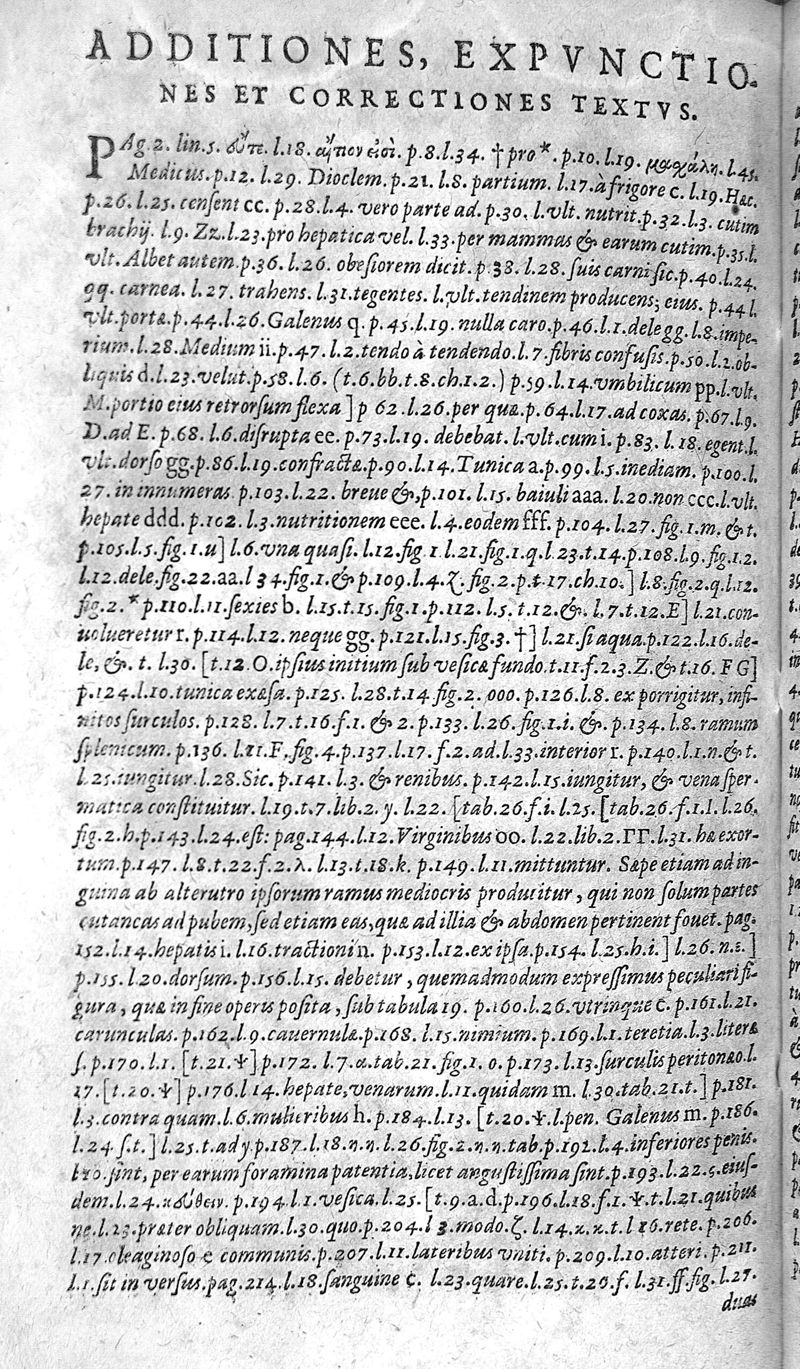 ADDITIONES, EXPVNCTIO-
NES ET CORRECTIONES TEXTVS.
PAg. 2. lin. 5. l. 18. p. 8. l. 34. † pro *. p. 10. l. 19. μασχάλη. l. 45.
Medicus. p. 12. l. 29. Dioclem. p. 21. l. 8. partium. l. 17. à frigore c. l. 19. Hæc.
p. 26. l. 25. censent cc. p. 28. l. 4. vero parte ad. p. 30. l. vlt. nutrit. p. 32. l. 3. cutim
brachij. l. 9. Zz. l. 23. pro hepatica vel. l. 33. per mammas & earum cutim. p. 35. l.
vlt. Albet autem. p. 36. l. 26. obesiorem dicit. p. 38. l. 28. suis carni sic. p. 40. l. 24.
qq. carnea. l. 27. trahens. l. 31. tegentes. l. vlt. tendinem producens; eius. p. 44 l.
vlt. portæ. p. 44. l. 26. Galenus q. p. 45. l. 19. nulla caro. p. 46. l. 1. dele gg. l. 8. impe-
rium. l. 28. Medium ii. p. 47. l. 2. tendo à tendendo. l. 7. fibris confusis. p. 50. l. 2. ob-
liquis d. l. 23. velut. p. 58. l. 6. (t. 6. bb. t. 8. ch. 1. 2.) p. 59. l. 14. vmbilicum pp. l. vlt.
M. portio eius retrorsum flexa ] p 62. l. 26. per quæ. p. 64. l. 17. ad coxas. p. 67. l. 9.
D. ad E. p. 68. l. 6. disrupta ee. p. 73. l. 19. debebat. l. vlt. cum i. p. 83. l. 18. egent. l.
vlt. dorso gg. p. 86. l. 19. confractæ. p. 90. l. 14. Tunica a. p. 99. l. 5. inediam. p. 100. l.
27. in innumeras p. 103. l. 22. breue &, p. 101. l. 15. baiuli aaa. l. 20. non ccc. l. vlt.
hepate ddd. p. 102. l. 3. nutritionem eee. l. 4. eodem fff. p. 104. l. 27. fig. 1. m. & t.
p. 105. l. 5. fig. 1. u ] l. 6. vna quasi. l. 12. fig. 1 l. 21. fig. 1. q. l. 23. t. 14. p. 108. l. 9. fig. 1. 2.
l. 12. dele. fig. 22. aa. l 34. fig. 1. & p. 109. l. 4. ζ. fig. 2. p. t. 17. ch. 10. ] l. 8. fig. 2. q. l. 12.
fig. 2. * p. 110. l. 11. sexies b. l. 15. t. 15. fig. 1. p. 112. l. 5. t. 12. &. l. 7. t. 12. E ] l. 21. con-
uolueretur r. p. 114. l. 12. neque gg. p. 121. l. 15. fig. 3. † ] l. 21. si aqua. p. 122. l. 16. de-
le, &. t. l. 30. [ t. 12. O. ipsius initium sub vesicæ fundo. t. 11. f. 2. 3. Z. & t. 16. F G ]
p. 124. l. 10. tunica exæsa. p. 125. l. 28. t. 14 fig. 2. 000. p. 126. l. 8. ex porrigitur, infi-
nitos surculos. p. 128. l. 7. t. 16. f. 1. & 2. p. 133. l. 26. fig. 1. i. &. p. 134. l. 8. ramum
splenicum. p. 136. l. 21. F. fig. 4. p. 137. l. 17. f. 2. ad. l. 33. interior r. p. 140. l. 1. n. & t.
l. 25. iungitur. l. 28. Sic. p. 141. l. 3. & renibus. p. 142. l. 15. iungitur, & vena sper-
matica constituitur. l. 19. t. 7. lib. 2. y. l. 22. [ tab. 26. f. i. l. 25. [ tab. 26. f. 1. l. l. 26.
fig. 2. h. p. 143. l. 24. est: pag. 144. l. 12. Virginibus oo. l. 22. lib. 2. ΓΓ. l. 31. hæ exor-
tum. p. 147. l. 8. t. 22. f. 2. λ. l. 13. t. 18. k. p. 149. l. 11. mittuntur. Sæpe etiam ad in-
guina ab alterutro ipsorum ramus mediocris producitur, qui non solum partes
cutaneas ad pubem, sed etiam eas, quæ ad illia & abdomen pertinent fouet. pag.
152. l. 14. hepatis i. l. 16. tractioni n. p. 153. l. 12. ex ipsa. p. 154. l. 25. h. i. ] l. 26. n. 2. ]
p. 155. l. 20. dorsum. p. 156. l. 15. debetur, quemadmodum expressimus peculiari fi-
gura, quæ in fine operis posita, sub tabula 19. p. 160. l. 26. vtrinque c. p. 161. l. 21.
carunculas. p. 162. l. 9. cauernulæ. p. 168. l. 15. nimium. p. 169. l. 1. teretia. l. 3. literæ
s. p. 170. l. 1. [ t. 21. Ψ ] p. 172. l. 7. α. tab. 21. fig. 1. o. p. 173. l. 13. surculis peritonæo. l.
17. [ t. 20. Ψ ] p. 176. l 14. hepate, venarum. l. 11. quidam m. l. 30. tab. 21. t. ] p. 181.
l. 3. contra quam. l. 6. mulieribus h. p. 184. l. 13. [ t. 20. Ψ. l. pen. Galenus m. p. 186.
l. 24 s. t. ] l. 25. t. ad y. p. 187. l. 18. η. η. l. 26. fig. 2. η. η. tab. p. 192. l. 4. inferiores penis.
l. 10. sint, per earum foramina patentia, licet angustissima sint. p. 193. l. 22. ς. eius-
dem. l. 24. p. 194. l. 1. vesica. l. 25. [ t. 9. a. d. p. 196. l. 18. f. 1. Ψ. t. l. 21. quibus
ne. l. 23. præter obliquam. l. 30. quo. p. 204. l 3. modo. ζ. l. 14. κ. κ. t. l 16. rete. p. 206.
l. 17. oleaginoso e communis. p. 207. l. 11. lateribus vniti. p. 209. l. 10. atteri. p. 211.
l. 1. sit in versus. pag. 214. l. 18. sanguine c. l. 23. quare. l. 25. t. 20. f. l. 31. ff. fig. l. 27.
duas